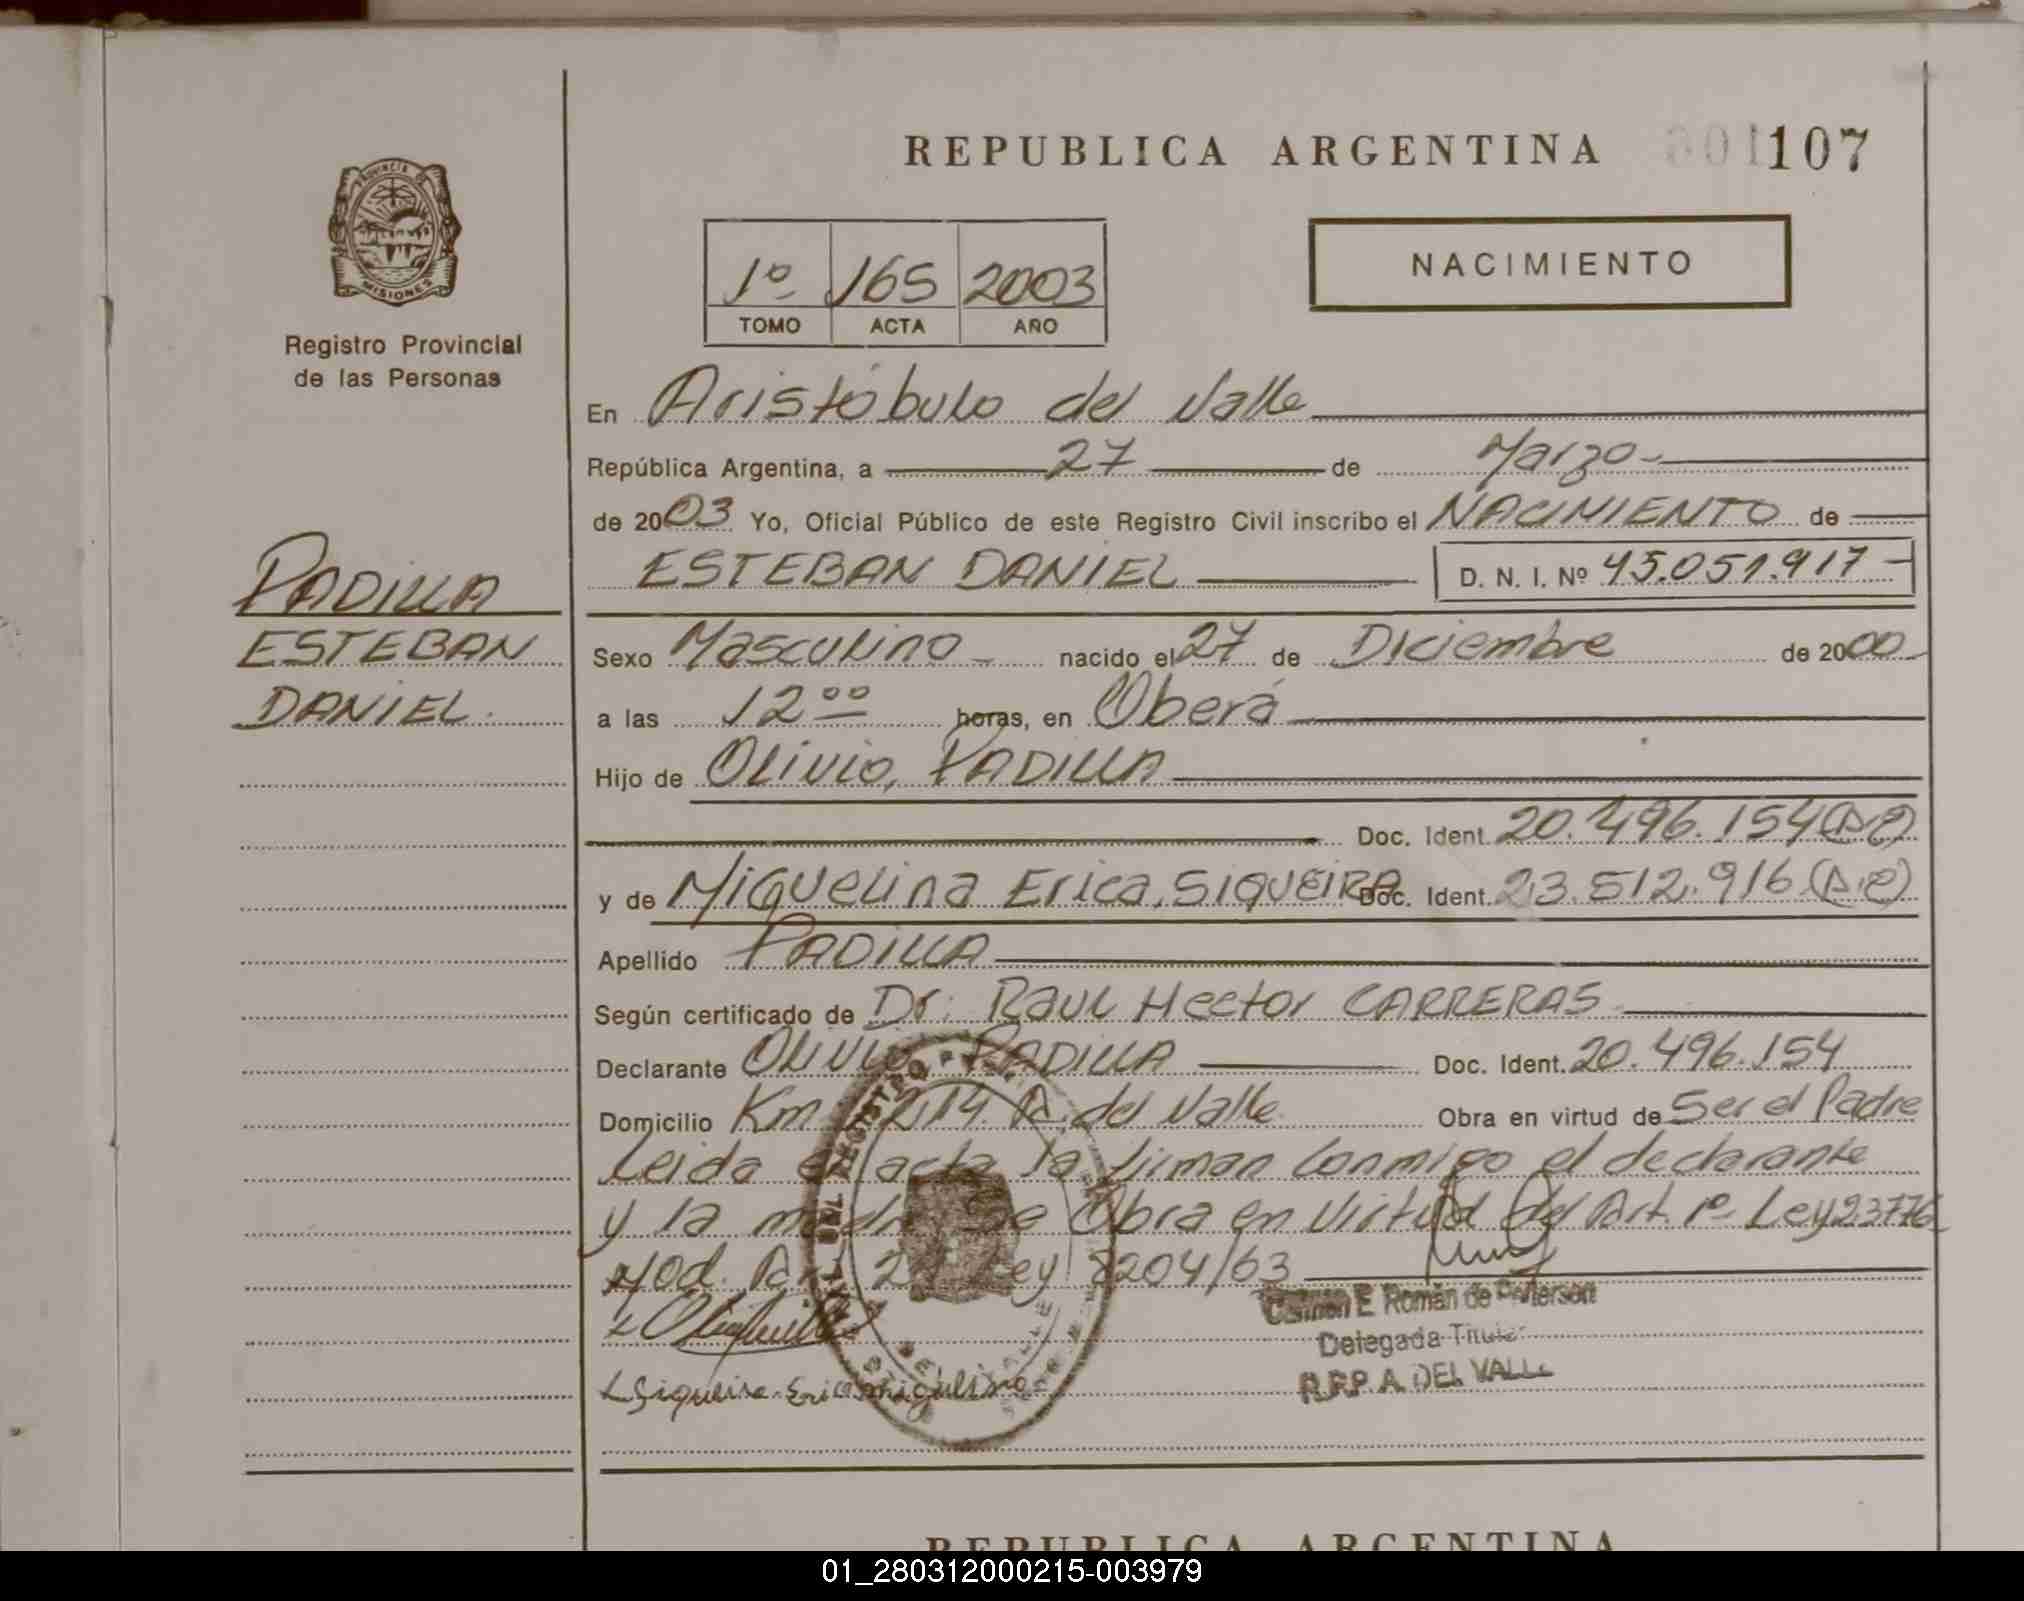 REPUBLICA ARGENTINA 001107
PROVINCIA DE
MISIONES
Registro Provincial
de las Personas
1º 165 2003
TOMO ACTA AÑO
NACIMIENTO
En Aristóbulo del Valle
República Argentina, a 27 de Marzo
de 2003 Yo, Oficial Público de este Registro Civil inscribo el NACIMIENTO de
ESTEBAN DANIEL D. N. I. Nº 45.051.917
PADILLA
ESTEBAN
DANIEL.
Sexo Masculino nacido el 27 de Diciembre de 2000
a las 12 00 horas, en Oberá
Hijo de Olivio, PADILLA
Doc. Ident. 20.496.154
y de Miguelina Erica, SIQUEIRA Doc. Ident. 23.512.916
Apellido PADILLA
Según certificado de Dr. Raul Hector CARRERAS
Declarante Olivio PADILLA Doc. Ident. 20.496.154
Domicilio Km 214. A. del Valle Obra en virtud de Ser el Padre
Leida el acta la firman conmigo el declarante
y la madre Se Obra en Virtud del Art. 1º Ley 23776
Mod. Art. Ley 8204/63
Carmen E. Román de Petterson
Delegada Titular
R.P.P. A. DEL VALLE
Siqueira Erica Miguelina
REPUBLICA ARGENTINA
01_280312000215-003979